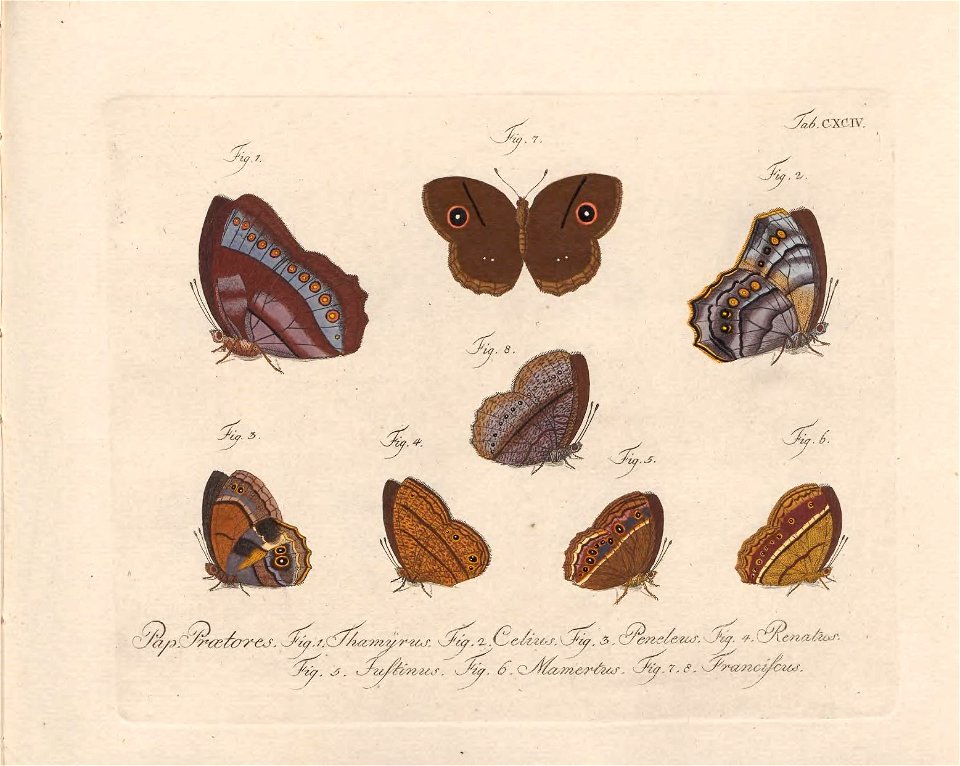 Tab. CXCIV.
Fig. 7.
Fig. 1.
Fig. 2.
Fig. 8.
Fig. 3.
Fig. 4.
Fig. 5.
Fig. 6.
Pap. Prætores. Fig. 1. Thamÿrus. Fig. 2. Celius. Fig. 3. Peneleus. Fig. 4. Renatus.
Fig. 5. Juſtinus. Fig. 6. Mamertus. Fig. 7. 8. Franciſcus.